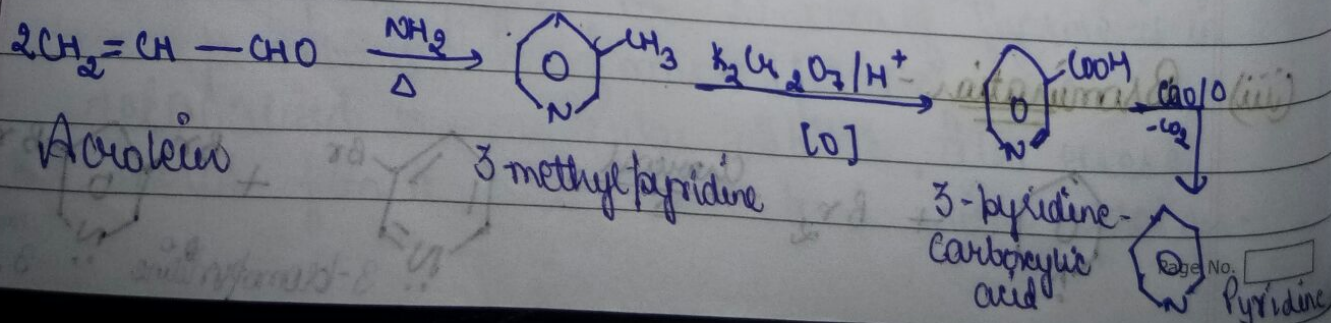 2CH2=CH—CHO NH2 Δ CH3 N K2Cr2O7/H+ [O] COOH N CaO/O -CO2
Acrolein 3-methylpyridine 3-pyridine-
carboxylic
acid
N Pyridine
Page No.